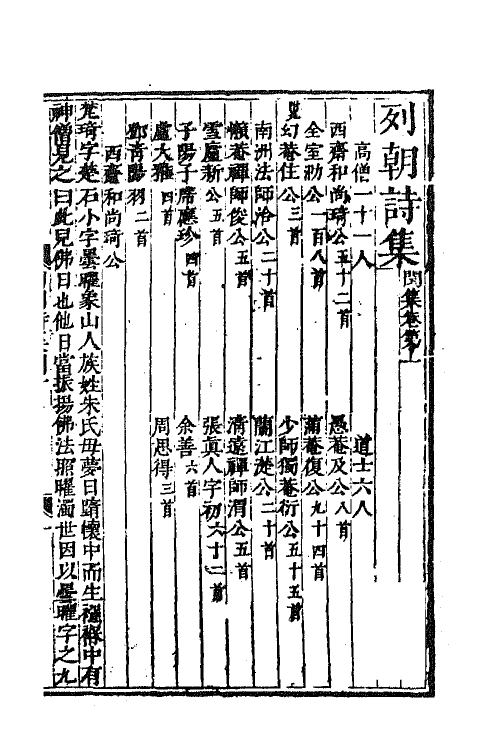 列朝詩集 閏集卷第一
高僧一十一人 道士六人
西齋和尚琦公五十二首 愚菴及公八首
全室泐公一百八首 蒲菴復公九十四首
見幻菴住公三首 少師獨菴衍公五十五首
南洲法師洽公二十首 蘭江楚公二十首
懶菴禪師俊公五首 清遠禪師渭公五首
雪廬新公五首 張眞人字初六十二首
子陽子席應珍四首 余善六首
盧大雅四首 周思得三首
鄧青陽羽二首
西齋和尚琦公
梵琦字楚石小字曇曜象山人族姓朱氏母夢日墮懷中而生襁褓中有
神僧見之曰此兒佛日也他日當振揚佛法照曜濁世因以曇曜字之九